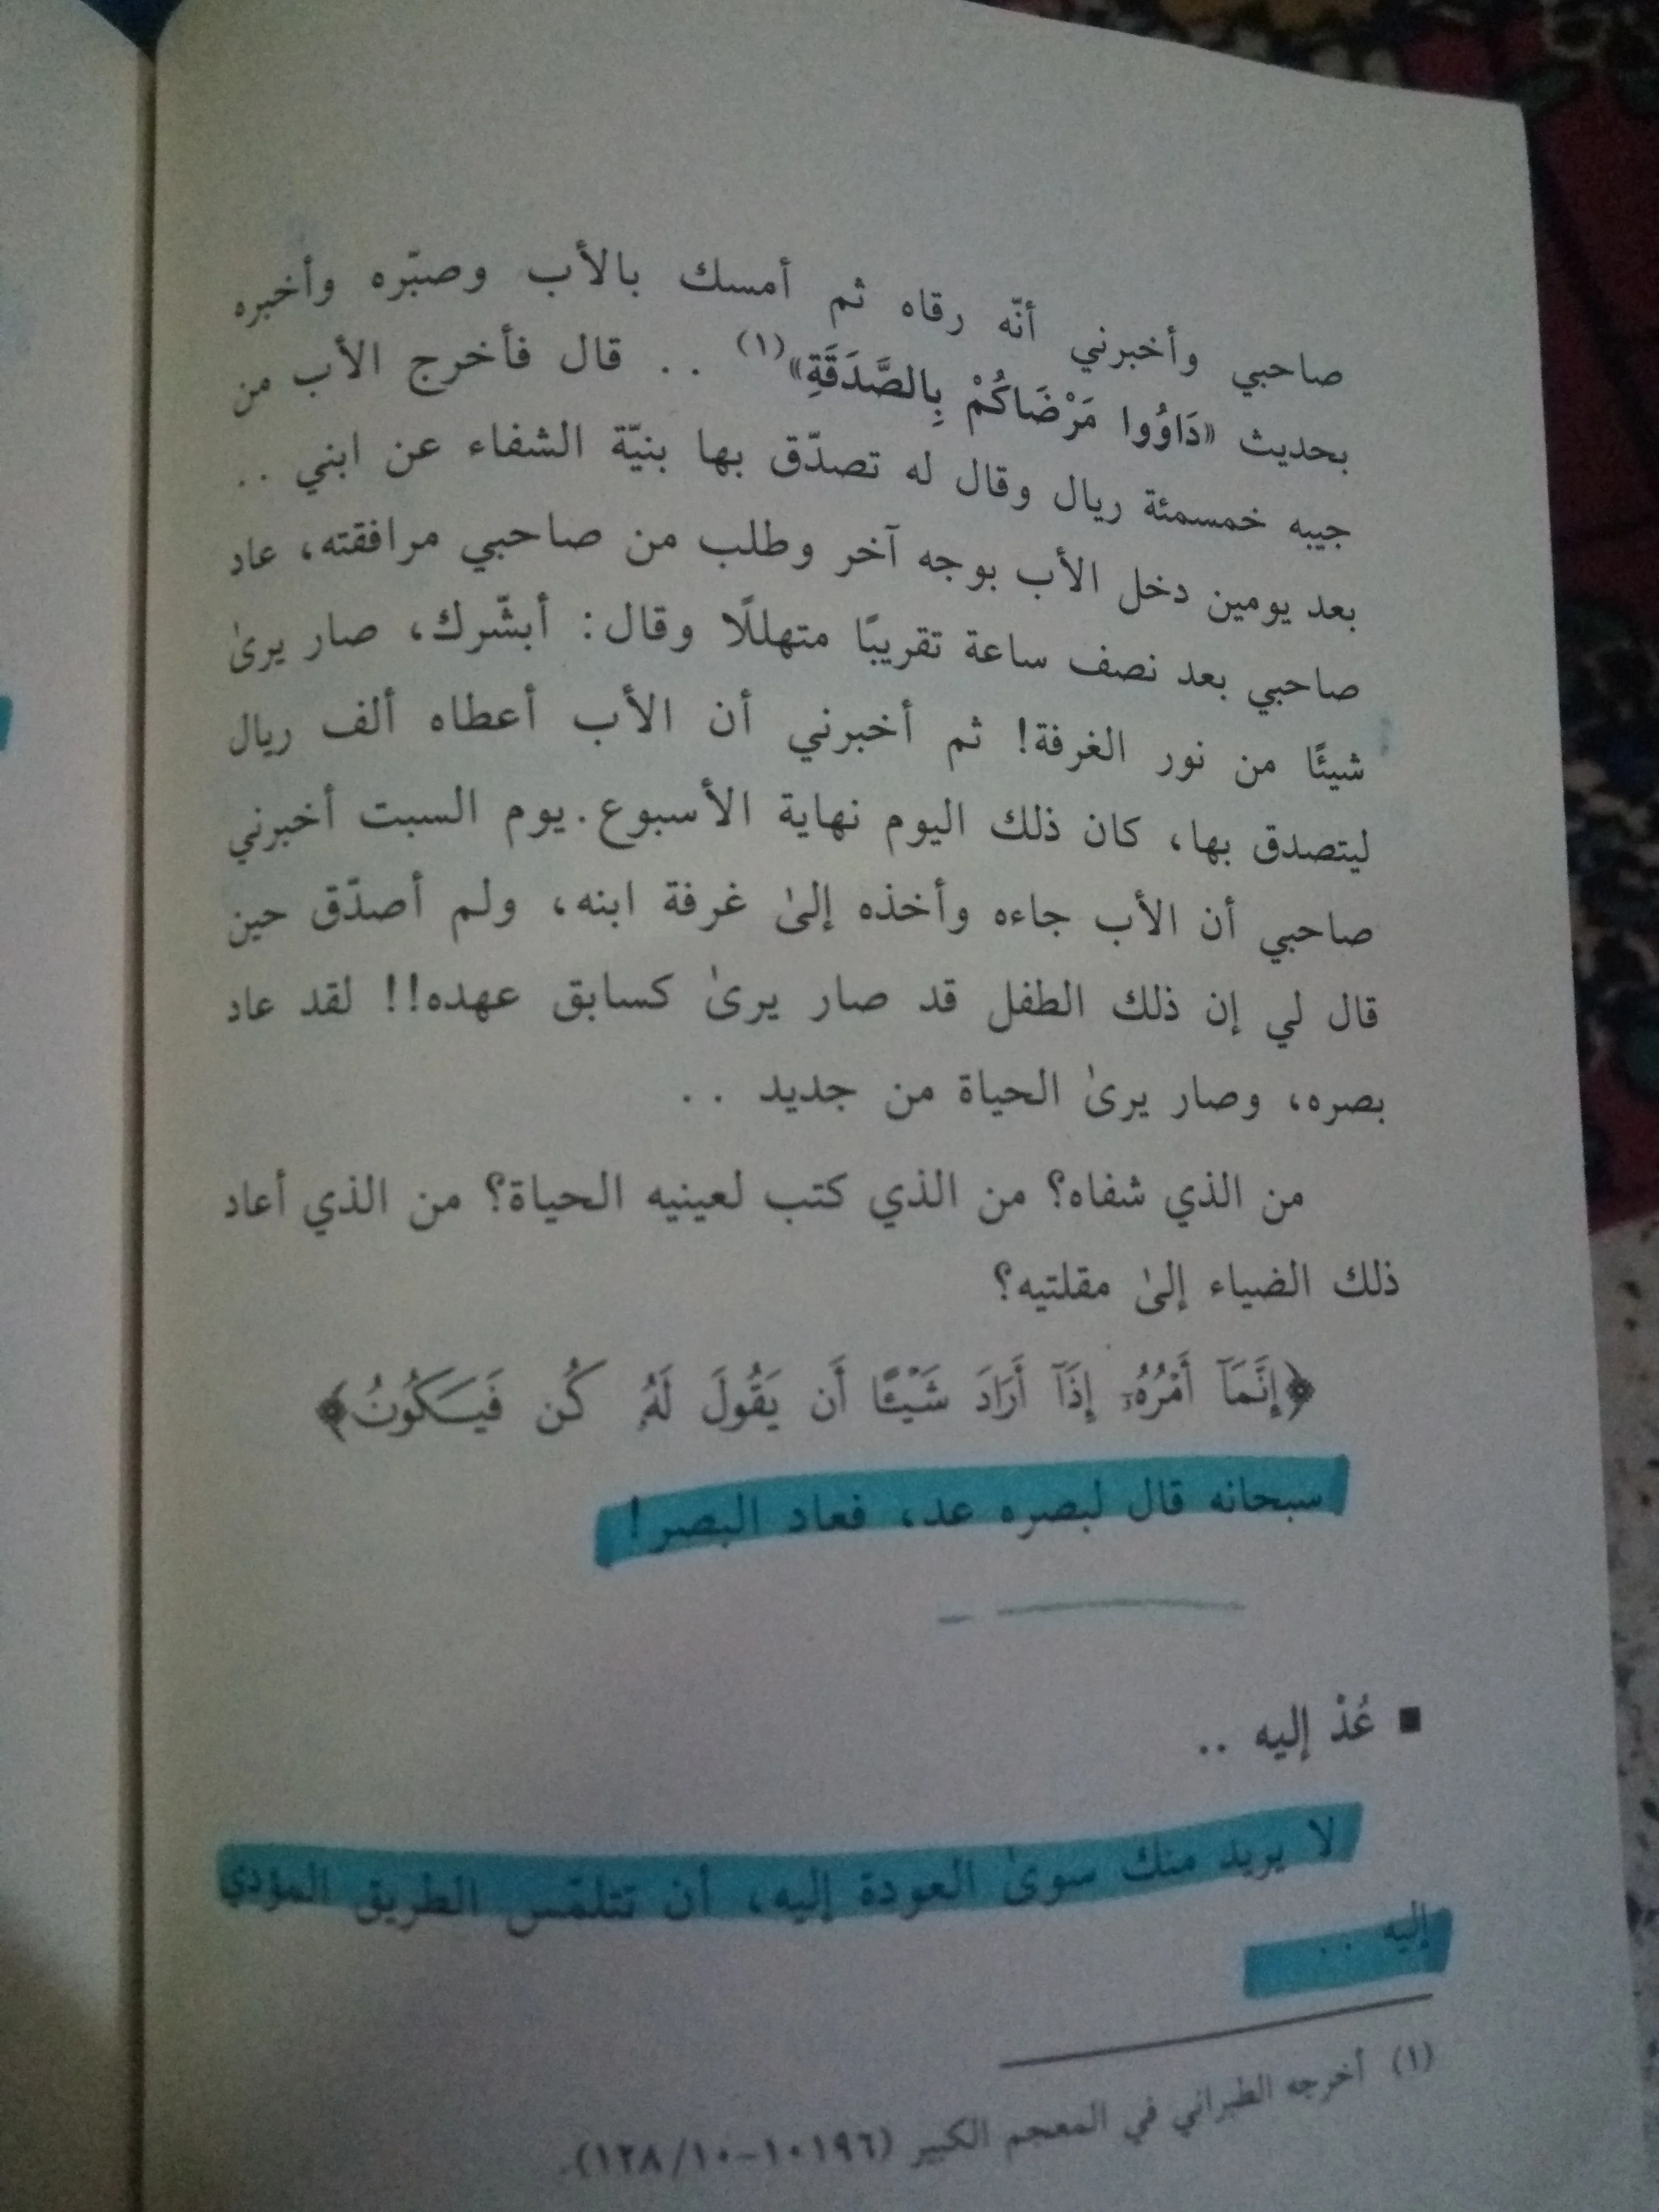 صاحبي وأخبرني أنّه رقاه ثم أمسك بالأب وصبّره وأخبره
بحديث «دَاوُوا مَرْضَاكُمْ بِالصَّدَقَةِ»(١) .. قال فأخرج الأب من
جيبه خمسمئة ريال وقال له تصدّق بها بنيّة الشفاء عن ابني ..
بعد يومين دخل الأب بوجه آخر وطلب من صاحبي مرافقته، عاد
صاحبي بعد نصف ساعة تقريبًا متهللًا وقال: أبشّرك، صار يرىٰ
شيئًا من نور الغرفة! ثم أخبرني أن الأب أعطاه ألف ريال
ليتصدق بها، كان ذلك اليوم نهاية الأسبوع.يوم السبت أخبرني
صاحبي أن الأب جاءه وأخذه إلىٰ غرفة ابنه، ولم أصدّق حين
قال لي إن ذلك الطفل قد صار يرىٰ كسابق عهده!! لقد عاد
بصره، وصار يرىٰ الحياة من جديد ..
من الذي شفاه؟ من الذي كتب لعينيه الحياة؟ من الذي أعاد
ذلك الضياء إلىٰ مقلتيه؟
﴿إِنَّمَآ أَمْرُهُۥٓ إِذَآ أَرَادَ شَيْـًٔا أَن يَقُولَ لَهُۥ كُن فَيَكُونُ﴾
سبحانه قال لبصره عد، فعاد البصر!
■ عُدْ إليه ..
لا يريد منك سوىٰ العودة إليه، أن تتلمّس الطريق المؤدي
إليه ..
(١) أخرجه الطبراني في المعجم الكبير (١٠١٩٦-١٢٨/١٠).